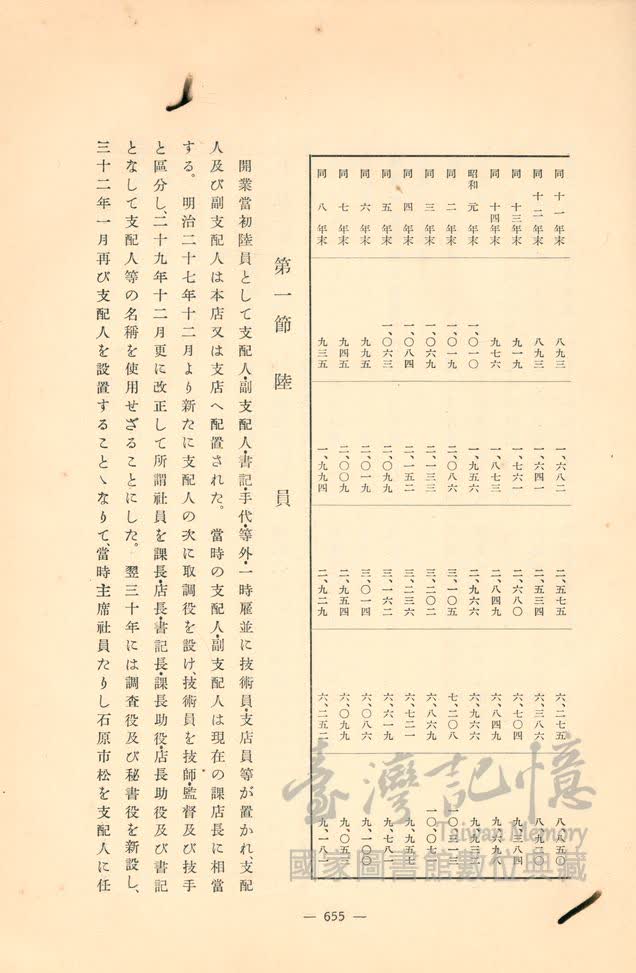 同 十一年末 八九三 一、六八二 二、五七五 六、二七五 八、八五〇
同 十二年末 八九三 一、六四一 二、五三四 六、三八六 八、九二〇
同 十三年末 九一九 一、七六一 二、六八〇 六、七〇四 九、三八四
同 十四年末 九七六 一、八七三 二、八四九 六、八四九 九、六九八
昭和 元年末 一、〇一〇 一、九五六 二、九六六 六、九六六 九、九三二
同 二年末 一、〇一九 二、〇八六 三、一〇五 七、二〇八 一〇、三一三
同 三年末 一、〇六九 二、一三三 三、二〇二 六、八六九 一〇、〇七一
同 四年末 一、〇八四 二、一五二 三、二三六 六、七二一 九、九五七
同 五年末 一、〇六三 二、〇九九 三、一六二 六、六一九 九、七八一
同 六年末 九九五 二、〇一九 三、〇一四 六、〇八六 九、一〇〇
同 七年末 九四五 二、〇〇九 二、九五四 六、〇九九 九、〇五三
同 八年末 九三五 一、九九四 二、九二九 六、二五二 九、一八一
第一節 陸員
開業當初陸員として支配人・副支配人・書記・手代・等外・一時雇並に技術員・支店員等が置かれ、支配
人及び副支配人は本店又は支店へ配置された。當時の支配人・副支配人は現在の課店長に相當
する。明治二十七年十二月より新たに支配人の次に取調役を設け、技術員を技師・監督及び技手
と區分し、二十九年十二月更に改正して所謂社員を課長・店長・書記長・課長助役・店長助役及び書記
となして支配人等の名稱を使用せざることにした。翌三十年には調査役及び秘書役を新設し、
三十二年一月再び支配人を設置することゝなりて、當時主席社員たりし石原市松を支配人に任
— 655 —
臺灣記憶
Taiwan Memory
國家圖書館數位典藏